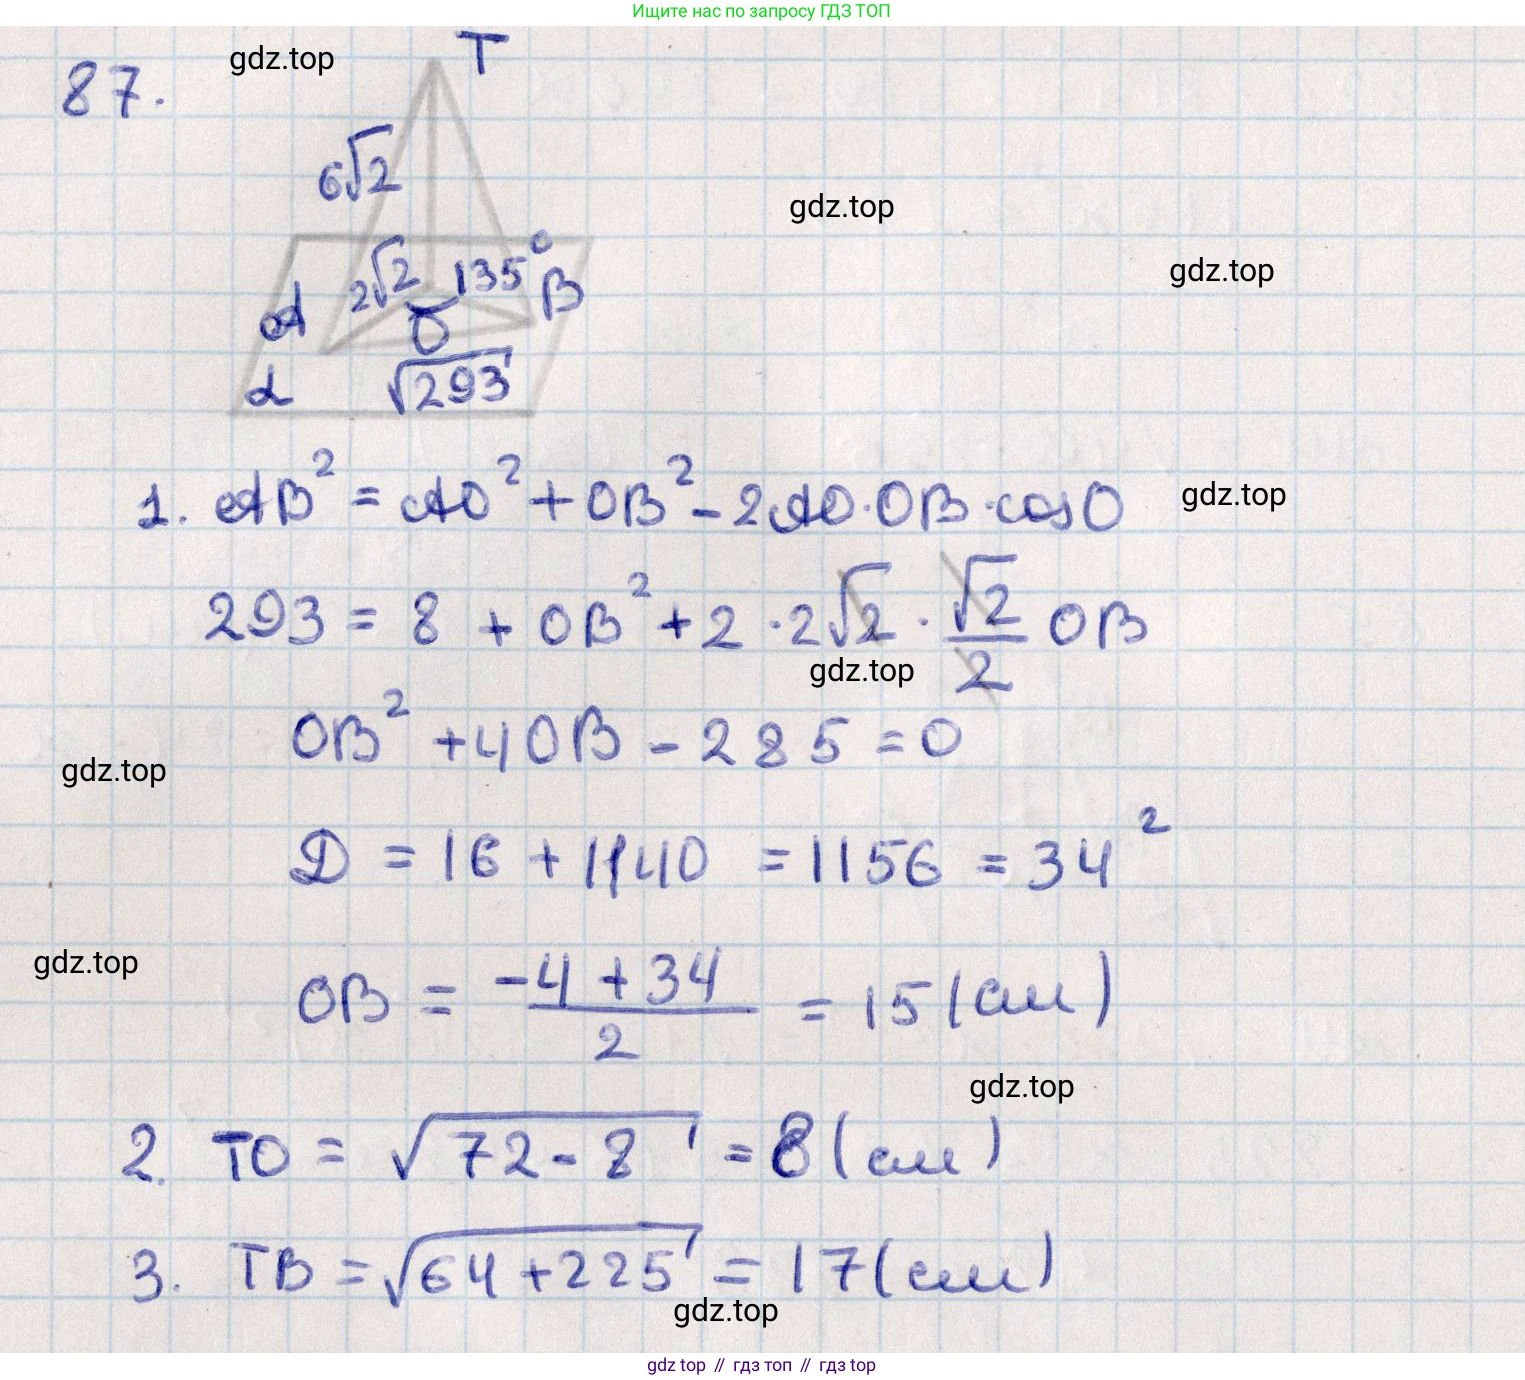 Ищите нас по запросу ГДЗ ТОП
gdz.top
T
87.
6√2
gdz.top
gdz.top
2√2 135°
A O B
α √293
1. AB² = AO² + OB² - 2AO·OB·cosO
gdz.top
293 = 8 + OB² + 2·2√2·√2/2 OB
gdz.top
OB² + 4OB - 285 = 0
gdz.top
D = 16 + 1140 = 1156 = 34²
gdz.top
OB = (-4 + 34)/2 = 15 (см)
gdz.top
2. TO = √72-8 = 8 (см)
3. TB = √64+225 = 17 (см)
gdz.top
gdz top // гдз топ // гдз top